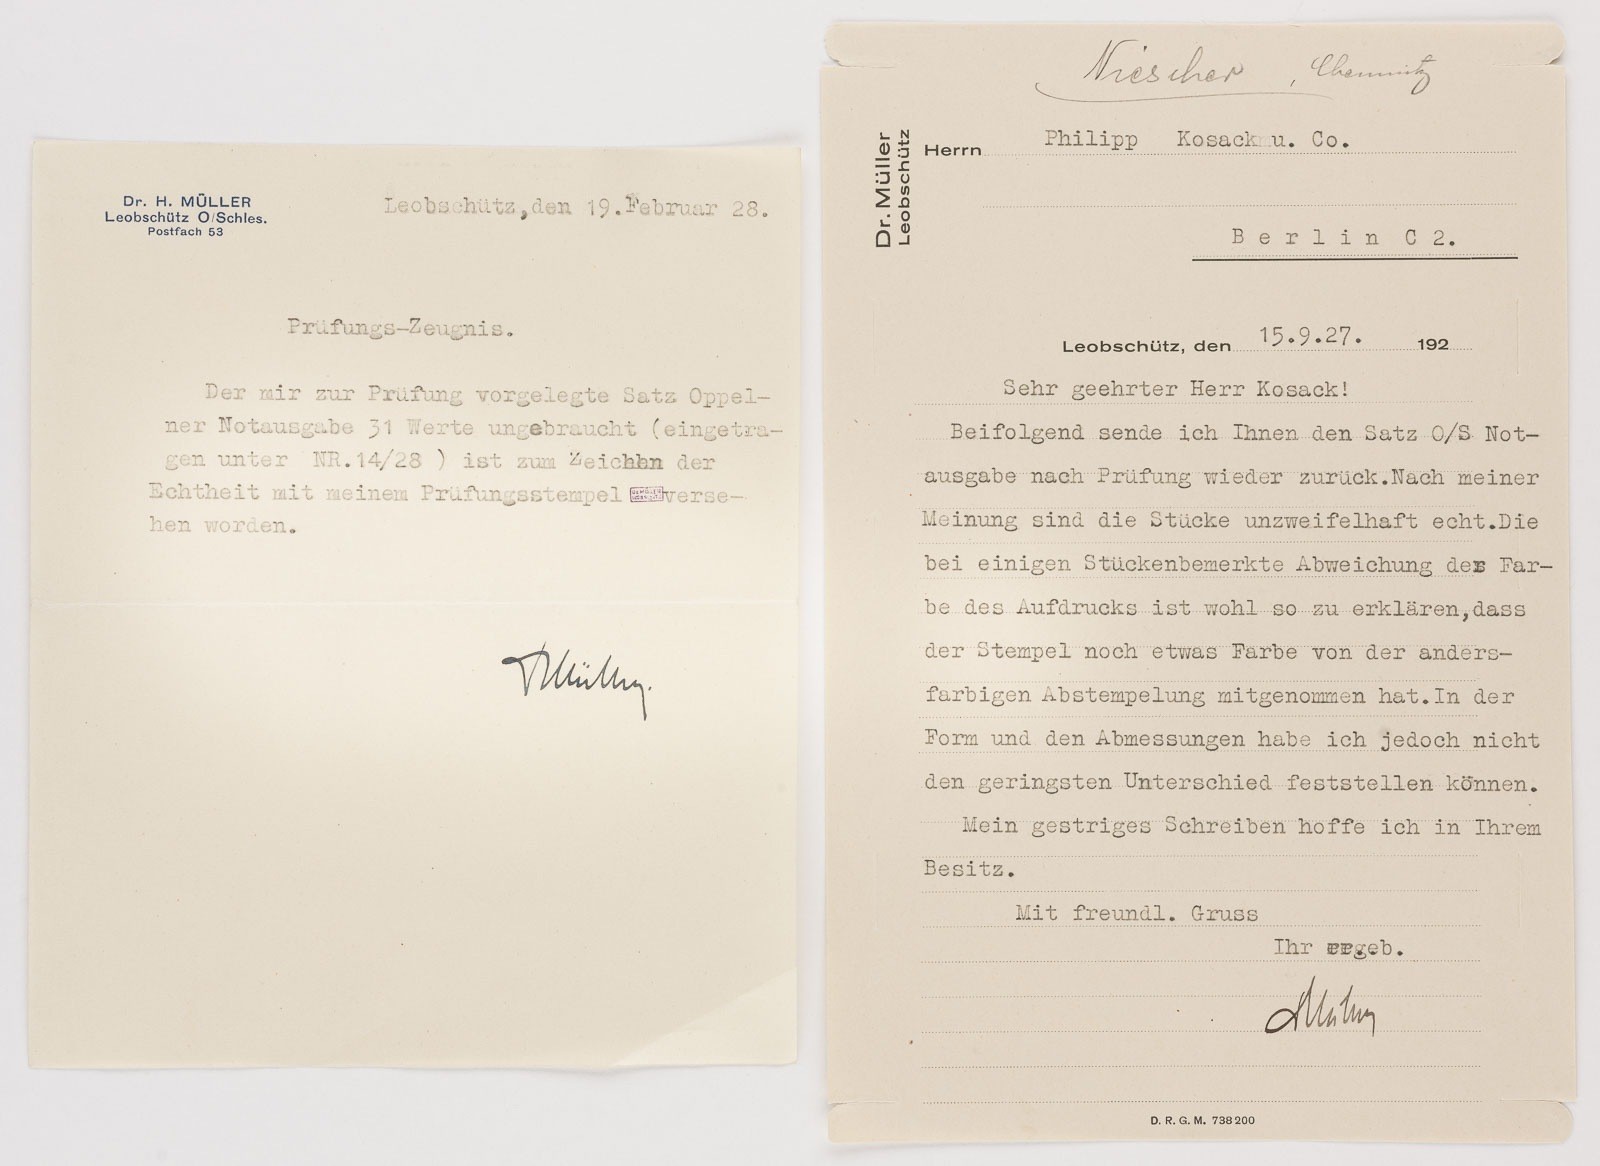 Dr. H. MÜLLER
Leobschütz O/Schles.
Postfach 53
Leobschütz,den 19.Februar 28.
Prüfungs-Zeugnis.
Der mir zur Prüfung vorgelegte Satz Oppel-
ner Notausgabe 31 Werte ungebraucht (eingetra-
gen unter NR.14/28 ) ist zum Zeichen der
Echtheit mit meinem Prüfungsstempel verse-
hen worden.
DrMüller.
Niescher, Chemnitz
Dr. Müller
Leobschütz
Herrn Philipp Kosack u. Co.
Berlin C 2.
Leobschütz, den 15.9.27. 192
Sehr geehrter Herr Kosack!
Beifolgend sende ich Ihnen den Satz O/S Not-
ausgabe nach Prüfung wieder zurück.Nach meiner
Meinung sind die Stücke unzweifelhaft echt.Die
bei einigen Stückenbemerkte Abweichung der Far-
be des Aufdrucks ist wohl so zu erklären,dass
der Stempel noch etwas Farbe von der anders-
farbigen Abstempelung mitgenommen hat.In der
Form und den Abmessungen habe ich jedoch nicht
den geringsten Unterschied feststellen können.
Mein gestriges Schreiben hoffe ich in Ihrem
Besitz.
Mit freundl. Gruss
Ihr ergeb.
DrMüller
D. R. G. M. 738200